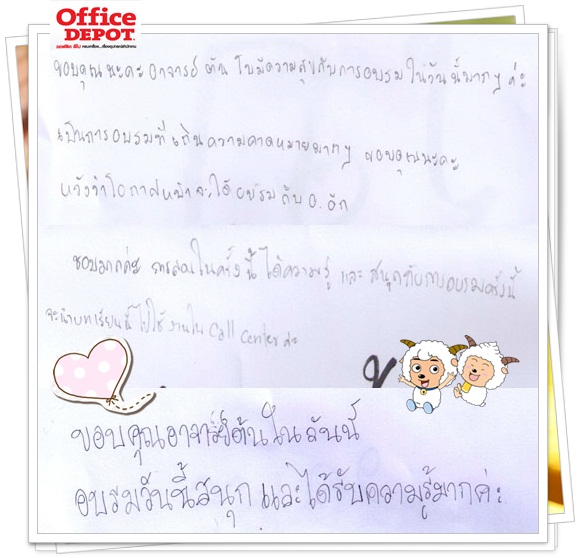 Office
DEPOT
ขอบคุณ นะคะ อาจารย์ ต้น โบมีความสุขกับการอบรม ในวันนี้มากๆ ค่ะ
เป็นการอบรมที่เกินความคาดหมายมากๆ ขอบคุณนะคะ
หวังว่าโอกาสหน้าจะได้อบรมกับ อ. อีก
ชอบมากค่ะ การสอนในครั้งนี้ ได้ความรู้ และ สนุกกับการอบรมครั้งนี้
จะนำบทเรียนนี้ ไปใช้ งานใน Call Center ค่ะ
ขอบคุณอาจารย์ต้นในวันนี้
อบรมวันนี้สนุก และได้รับความรู้มากค่ะ